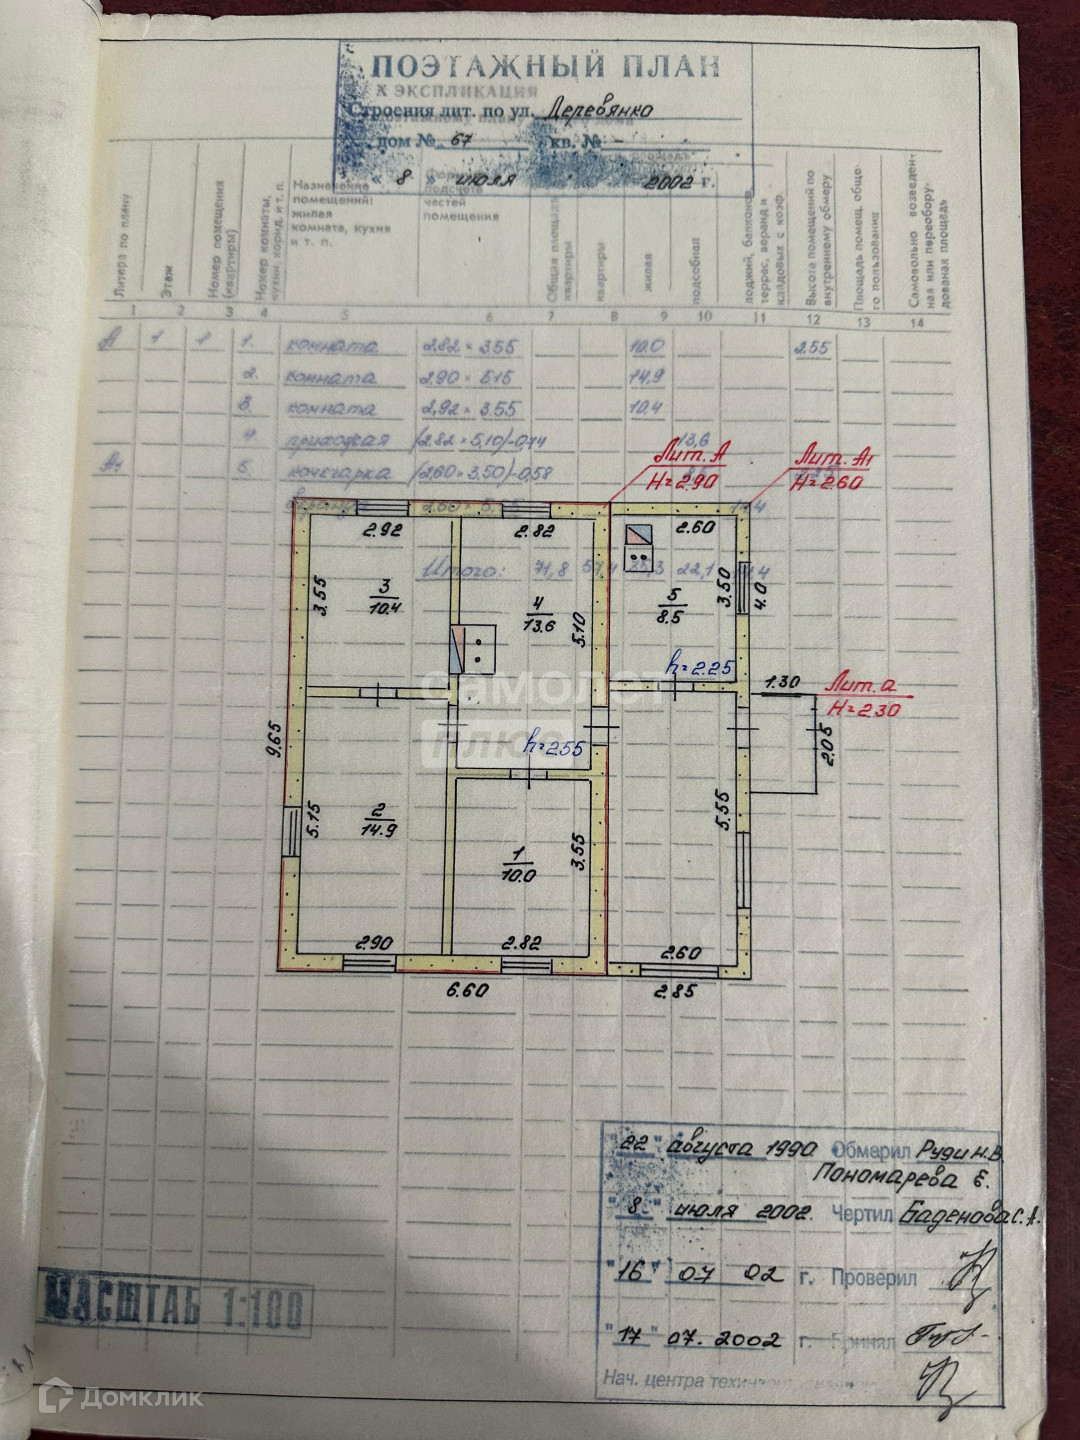 ПОЭТАЖНЫЙ ПЛАН
К ЭКСПЛИКАЦИЯ
Строения лит. по ул. Деревянко
дом № 67 кв. № -
" 8 " июля 2002 г.
Литера по плану
Этаж
Номер помещения (квартиры)
Номер комнаты, кухни, корид. и т. п.
Назначение помещений: жилая комната, кухня и т. п.
подсчета частей помещения
Общая площадь квартиры
квартиры
жилая
подсобная
лоджий, балконов, террас, веранд и кладовых с коэф.
Высота помещений по внутреннему обмеру
Площадь помещ. общего пользования
Самовольно возведенная или переоборудованая площадь
1 2 3 4 5 6 7 8 9 10 11 12 13 14
А 1 1 1. комната 2.82 × 3.55 10.0 2.55
2. комната 2.90 × 5.15 14.9
3. комната 2.92 × 3.55 10.4
4. прихожая (2.82 × 5.10)-0,44 13,6
А1 5. кочегарка (2,60 × 3,50)-0,58
Итого: 71,8
22,1
Лит. А
Н=2.90
Лит. А1
Н=2.60
2.92
2.82
2.60
3.55
3
10.4
4
13.6
5.10
5
8.5
3.50
4.0
h=2.25
1.30
Лит. а
Н=2.30
2.05
самолет
плюс
h=2.55
9.65
5.15
2
14.9
1
10.0
3.55
5.55
2.90
2.82
2.60
6.60
2.85
"22" августа 1990 Обмерил Руди Н.В.
Пономарева Е.
"8" июля 2002. Чертил Баденова С.А.
"16" 07 02 г. Проверил
"17" 07. 2002 г. Принял
Нач. центра
МАСШТАБ 1:100
Домклик